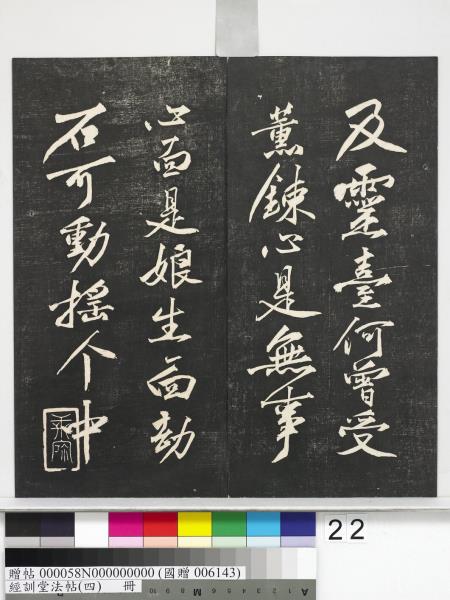 及靈臺何曾受
薰鍊心是無事
心面是娘生面劫
石可動搖个中
22
贈帖 000058N000000000 (國贈 006143)
經訓堂法帖(四) 冊